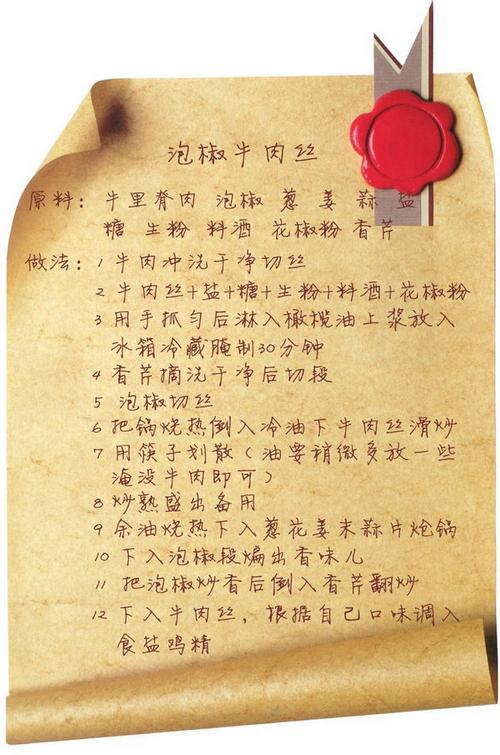 泡椒牛肉丝
原料：牛里脊肉 泡椒 葱 姜 蒜 盐
糖 生粉 料酒 花椒粉 香芹
做法：1 牛肉冲洗干净切丝
2 牛肉丝+盐+糖+生粉+料酒+花椒粉
3 用手抓匀后淋入橄榄油上浆放入
冰箱冷藏腌制30分钟
4 香芹摘洗干净后切段
5 泡椒切丝
6 把锅烧热倒入冷油下牛肉丝滑炒
7 用筷子划散（油要稍微多放一些
淹没牛肉即可）
8 炒熟盛出备用
9 余油烧热下入葱花姜末蒜片炝锅
10 下入泡椒段煸出香味儿
11 把泡椒炒香后倒入香芹翻炒
12 下入牛肉丝，根据自己口味调入
食盐鸡精